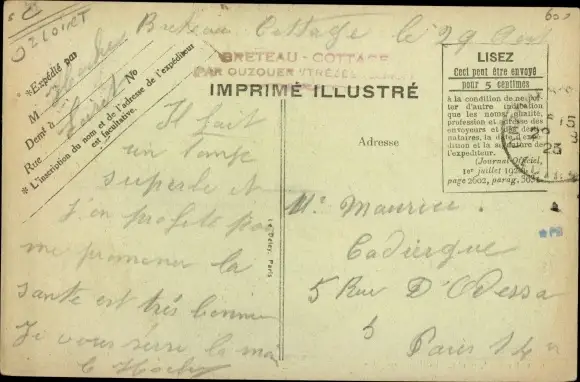 OZLOIRET
Breteau Cottage le 29 Aout
*Expédié par
M
Demt à No
Rue Loiret
*L'inscription du nom et de l'adresse de l'expéditeur
est facultative.
BRETEAU - COTTAGE
PAR OUZOUER
IMPRIMÉ ILLUSTRÉ
LISEZ
Ceci peut être envoyé
pour 5 centimes
à la condition de ne porter
d'autre indication
que les noms, qualité,
profession et adresse des
envoyeurs et des destinataires,
la date d'expédition
et la signature de
l'expéditeur.
(Journal Officiel,
1er juillet 192
page 2602, parag.
Adresse
Il fait
un temps
superbe et
J'en profite pour
me promener la
santé est très bonne
Je vous serre la main
Mr Maurice
Cadiergue
5 Rue D'Odessa
5
Paris 14
Le Deley, Paris
PB